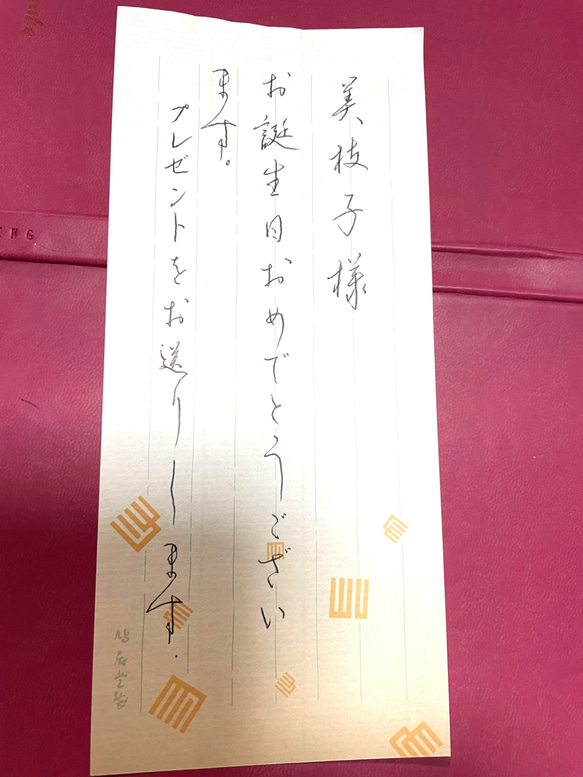 美枝子様
お誕生日おめでとうござい
ます。
プレゼントをお送りします.
鳩居堂製